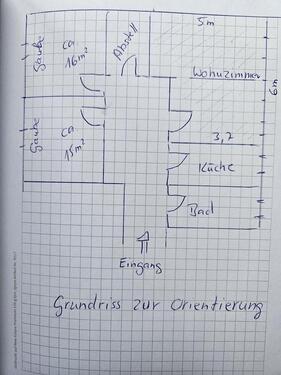 5m
Gaube
ca
16m²
Abstell
Wohnzimmer
6m
Gaube
ca
15m²
3,7
Küche
Bad
Eingang
Grundriss zur Orientierung